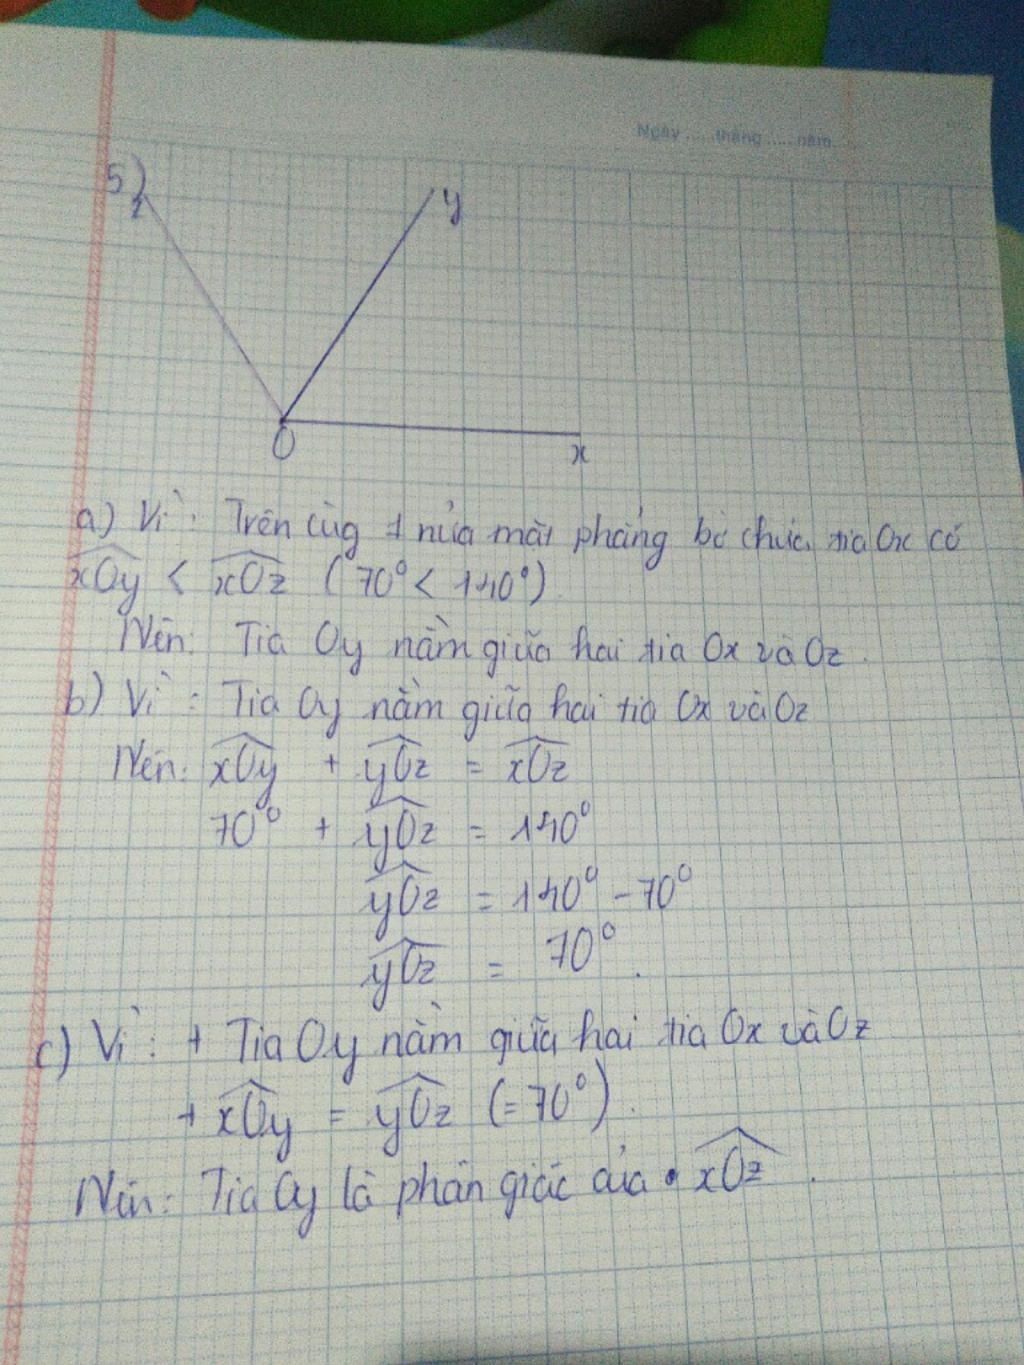 Ngày ..... tháng ..... năm ....
5)
z
y
O
x
a) Vì: Trên cùg 1 nửa mặt phẳng bờ chứa tia Ox có
xOy < xOz (70° < 140°)
Nên: Tia Oy nằm giữa hai tia Ox và Oz.
b) Vì: Tia Oy nằm giữa hai tia Ox và Oz
Nên: xOy + yOz = xOz
70° + yOz = 140°
yOz = 140° - 70°
yOz = 70°.
c) Vì: + Tia Oy nằm giữa hai tia Ox và Oz
+ xOy = yOz (= 70°).
Nên: Tia Oy là phân giác của xOz.